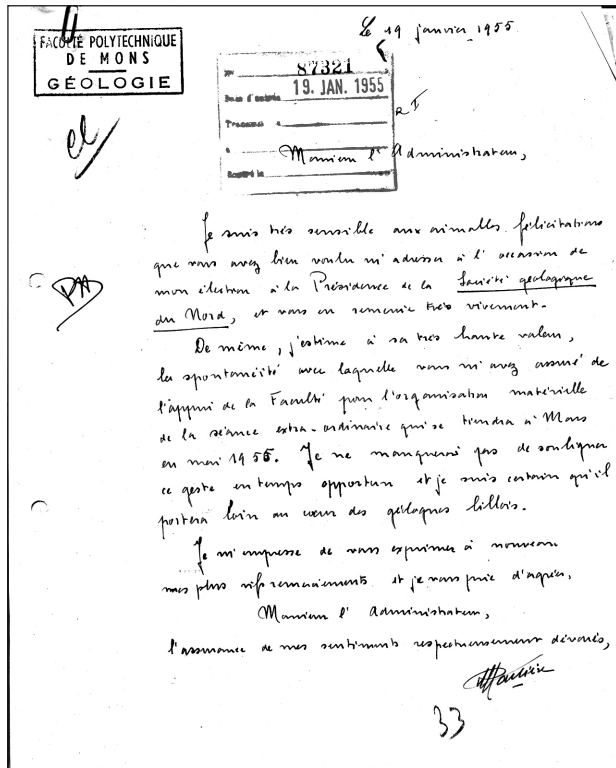 Le 19 janvier 1955
FACULTÉ POLYTECHNIQUE
DE MONS
GÉOLOGIE
87321
Date d'entrée 19. JAN. 1955
Transmis à
à
Monsieur l'Administrateur,
Je suis très sensible aux aimables félicitations
que vous avez bien voulu m'adresser à l'occasion de
mon élection à la Présidence de la Société géologique
du Nord, et vous en remercie très vivement.
De même, j'estime à sa très haute valeur,
la spontanéité avec laquelle vous m'avez assuré de
l'appui de la Faculté pour l'organisation matérielle
de la séance extra-ordinaire qui se tiendra à Mons
en mai 1955. Je ne manquerai pas de souligner
ce geste en temps opportun et je suis certain qu'il
portera loin au cœur des géologues lillois.
Je m'empresse de vous exprimer à nouveau
mes plus vifs remerciements et je vous prie d'agréer,
Monsieur l'Administrateur,
l'assurance de mes sentiments respectueusement dévoués,
33